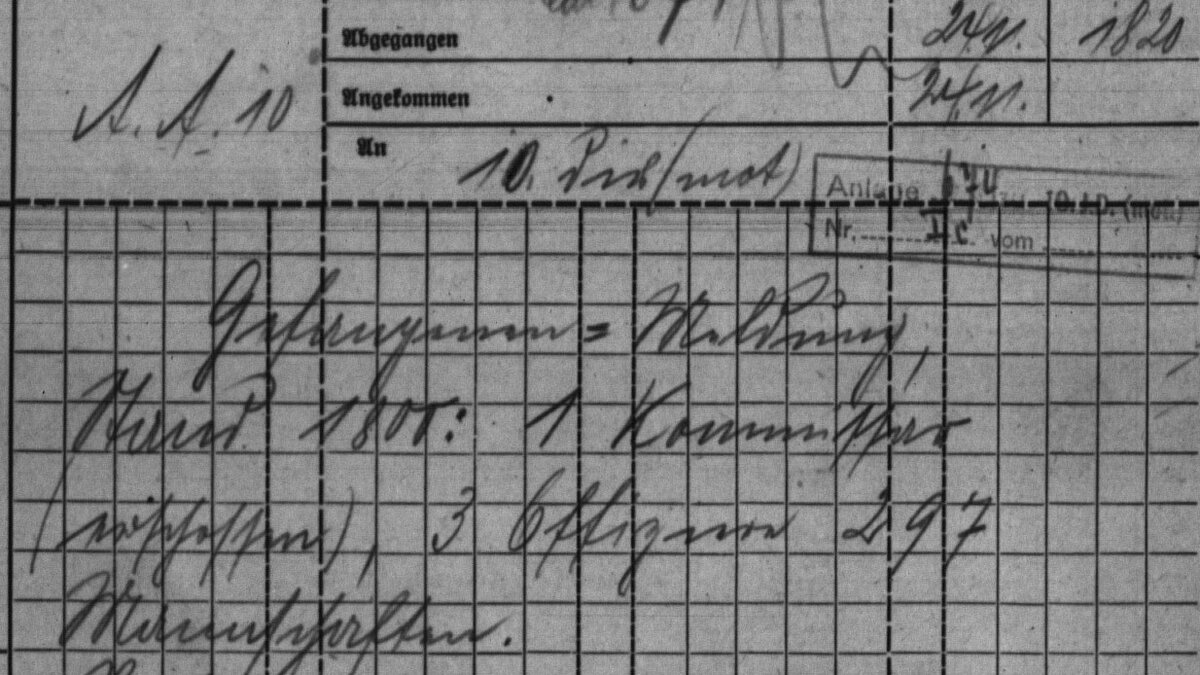 Abgegangen 24/VI. 1820
Angekommen 24/VI.
A. A. 10
An 10. Div (mot)
Anlage 10. I.D. (mot)
Nr. Ic vom
Gefangenen = Meldung,
Stand 1800: 1 Kommissar
(erschossen), 3 Offiziere 297
Mannschaften.